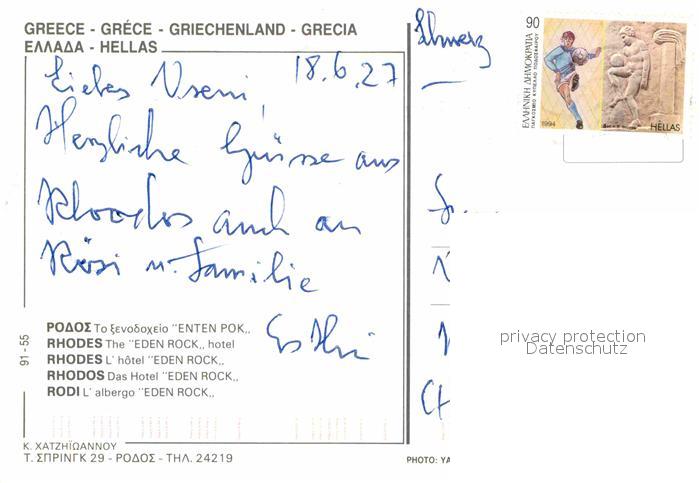 GREECE - GRÉCE - GRIECHENLAND - GRECIA
ΕΛΛΑΔΑ - HELLAS
18.6.27
Liebes Vreni,
Herzliche Grüsse aus
Rhodos auch an
Rösi u. Familie
ΡΟΔΟΣ Το ξενοδοχείο ‘‘ΕΝΤΕΝ ΡΟΚ,,
RHODES The ‘‘EDEN ROCK,, hotel
RHODES L' hôtel ‘‘EDEN ROCK,,
RHODOS Das Hotel ‘‘EDEN ROCK,,
RODI L' albergo ‘‘EDEN ROCK,,
91-55
Κ. ΧΑΤΖΗΪΩΑΝΝΟΥ
Τ. ΣΠΡΙΝΓΚ 29 - ΡΟΔΟΣ - ΤΗΛ. 24219
PHOTO: YA
90
ΕΛΛΗΝΙΚΗ ΔΗΜΟΚΡΑΤΙΑ
ΠΑΓΚΟΣΜΙΟ ΚΥΠΕΛΛΟ ΠΟΔΟΣΦΑΙΡΟΥ
1994
HELLAS
Fr.
CH
privacy protection
Datenschutz